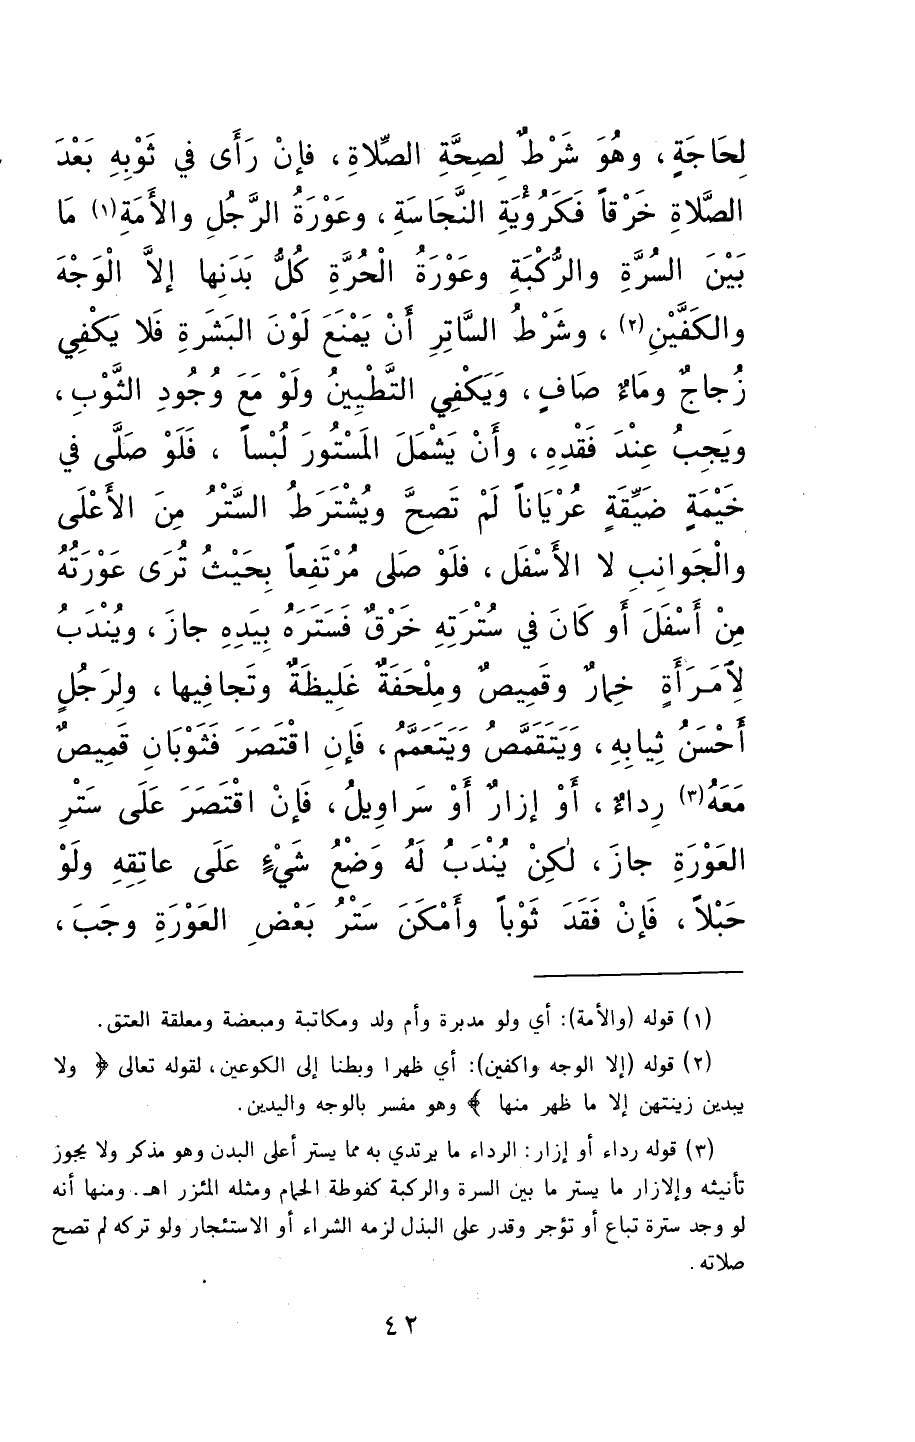 لِحَاجَةٍ، وهُوَ شَرْطٌ لِصِحَّةِ الصِّلاةِ، فإنْ رَأَى في ثَوْبِهِ بَعْدَ
الصَّلاةِ خَرْقاً فَكَرُؤْيَةِ النَّجَاسَةِ، وعَوْرَةُ الرَّجُلِ والأَمَةِ(١) مَا
بَيْنَ السُرَّةِ والرُّكْبَةِ وعَوْرَةُ الْحُرَّةِ كُلُّ بَدَنِها إلاَّ الْوَجْهَ
والكَفَّيْنِ(٢)، وشَرْطُ السَّاتِرِ أَنْ يَمْنَعَ لَوْنَ البَشَرَةِ فَلا يَكْفِي
زُجاجٌ ومَاءٌ صَافٍ، وَيَكْفِي التَّطْيِينُ ولَوْ مَعَ وُجُودِ الثَّوْبِ،
ويَجِبُ عِنْدَ فَقْدِهِ، وأَنْ يَشْمَلَ المَسْتُورَ لُبْساً ، فَلَوْ صَلَّى في
خَيْمَةٍ ضَيِّقَةٍ عُرْيَاناً لَمْ تَصِحَّ ويُشْتَرَطُ السَّتْرُ مِنَ الأَعْلَى
والْجَوانِبِ لا الأَسْفَل، فلَوْ صَلى مُرْتَفِعاً بِحَيْثُ تُرَى عَوْرَتُهُ
مِنْ أَسْفَلَ أَو كَانَ في سُتْرَتِهِ خَرْقٌ فَسَتَرَهُ بِيَدِهِ جازَ، ويُنْدَبُ
لاِمَرَأَةٍ خِمارٌ وقَمِيصٌ ومِلْحَفَةٌ غَلِيظَةٌ وتَجافِيها، ولِرَجُلٍ
أَحْسَنُ ثِيابِهِ، وَيَتَقَمَّصُ وَيَتَعَمَّمُ، فَإنِ اقْتَصَرَ فَثَوْبَانِ قَمِيصٌ
مَعَهُ(٣) رِداءٌ، أَوْ إزارٌ أَوْ سَراوِيلُ، فَإنْ اقْتَصَرَ عَلَى سَتْرِ
العَوْرَةِ جازَ، لٰكِنْ يُنْدَبُ لَهُ وَضْعُ شَيْءٍ عَلَى عاتِقِهِ ولَوْ
حَبْلاً، فَإنْ فَقَدَ ثَوْباً وأَمْكَنَ سَتْرُ بَعْضِ العَوْرَةِ وجَبَ،
(١) قوله (والأمة): أي ولو مدبرة وأم ولد ومكاتبة ومبعضة ومعلقة العتق.
(٢) قوله (إلا الوجه واكفين): أي ظهرا وبطنا إلى الكوعين، لقوله تعالى ﴿ ولا
يبدين زينتهن إلا ما ظهر منها ﴾ وهو مفسر بالوجه واليدين.
(٣) قوله رداء أو إزار: الرداء ما يرتدي به مما يستر أعلى البدن وهو مذكر ولا يجوز
تأنيثه والازار ما يستر ما بين السرة والركبة كفوطة الحمام ومثله المئزر اهـ. ومنها أنه
لو وجد سترة تباع أو تؤجر وقدر على البذل لزمه الشراء أو الاستئجار ولو تركه لم تصح
صلاته.
٤٢